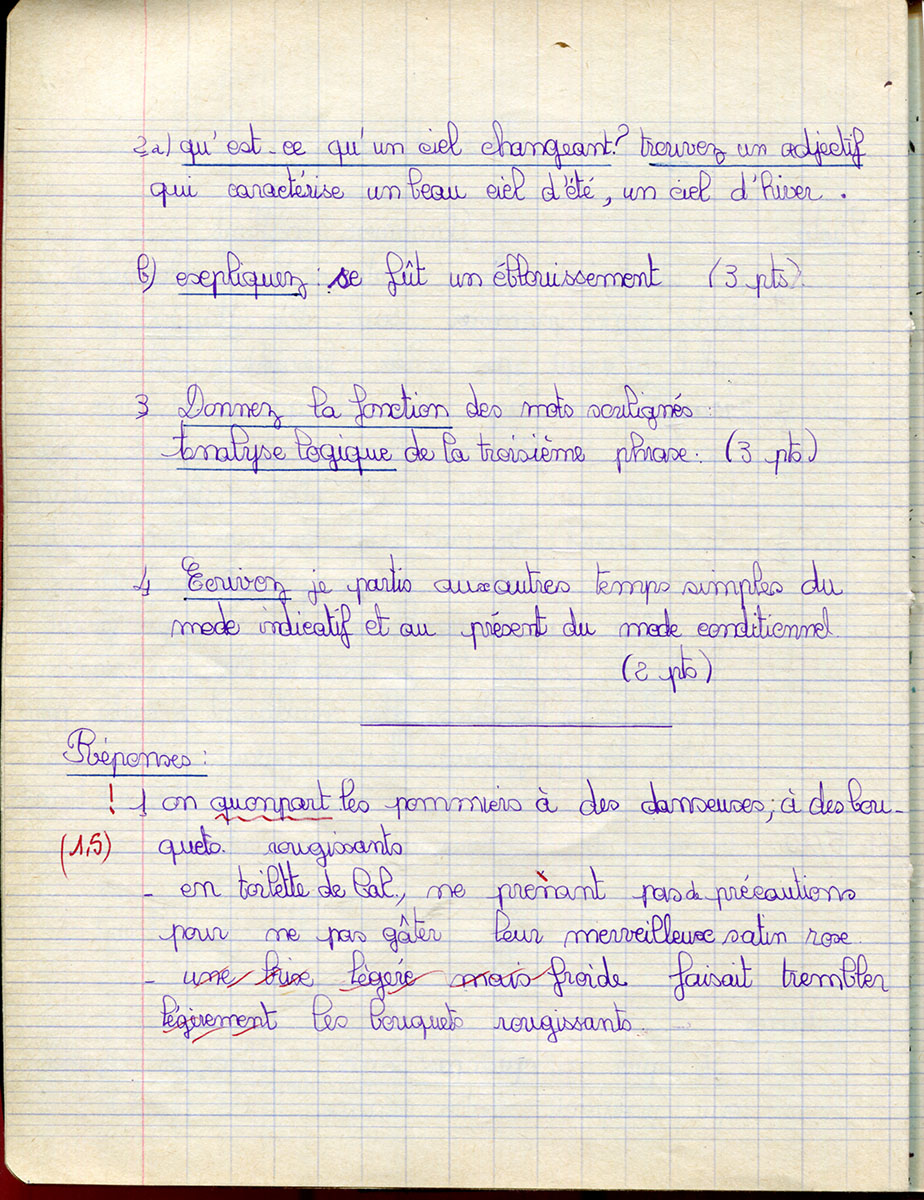 2a) qu'est-ce qu'un ciel changeant? trouvez un adjectif
qui caractérise un beau ciel d'été, un ciel d'hiver.
b) expliquez: se fût un éblouissement (3 pts)
3 Donnez la fonction des mots soulignés:
Analyse logique de la troisième phrase. (3 pts)
4 Ecrivez je partis aux autres temps simples du
mode indicatif et au présent du mode conditionnel
(2 pts)
Réponses:
! 1 on quonpart les pommiers à des danseuses; à des bou-
(1,5) quets. rougissants
- en toilette de bal, ne prenant pas de précautions
pour ne pas gâter leur merveilleux satin rose.
- une brise légère mais froide faisait trembler
légèrement les bouquets rougissants.